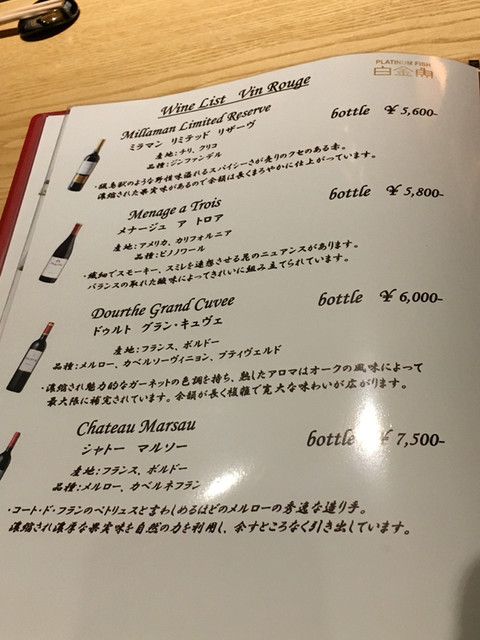 PLATINUM FISH
白金魚
Wine List Vin Rouge
Millaman Limited Reserve bottle ¥ 5,600-
ミラマン リミテッド リザーヴ
産地:チリ、クリコ
品種:ジンファンデル
・猟鳥獣のような野性味溢れるスパイシーさが売りのクセのある赤。
濃縮された果実味があるので余韻は長くまろやかに仕上がっています。
Menage a Trois bottle ¥ 5,800-
メナージュ ア トロア
産地:アメリカ、カリフォルニア
品種:ピノノワール
・繊細でスモーキー、スミレを連想させる花のニュアンスがあります。
バランスの取れた酸味によってきれいに組み立てられています。
Dourthe Grand Cuvee bottle ¥ 6,000-
ドゥルト グラン・キュヴェ
産地:フランス、ボルドー
品種:メルロー、カベルソーヴィニヨン、プティヴェルド
・濃縮され魅力的なガーネットの色調を持ち、熟したアロマはオークの風味によって
最大限に補完されています。余韻が長く複雑で寛大な味わいが広がります。
Chateau Marsau bottle ¥ 7,500-
シャトー マルソー
産地:フランス、ボルドー
品種:メルロー、カベルネフラン
・コート・ド・フランのペトリュスと言わしめるほどのメルローの秀逸な造り手。
濃縮され濃厚な果実味を自然の力を利用し、余すところなく引き出しています。